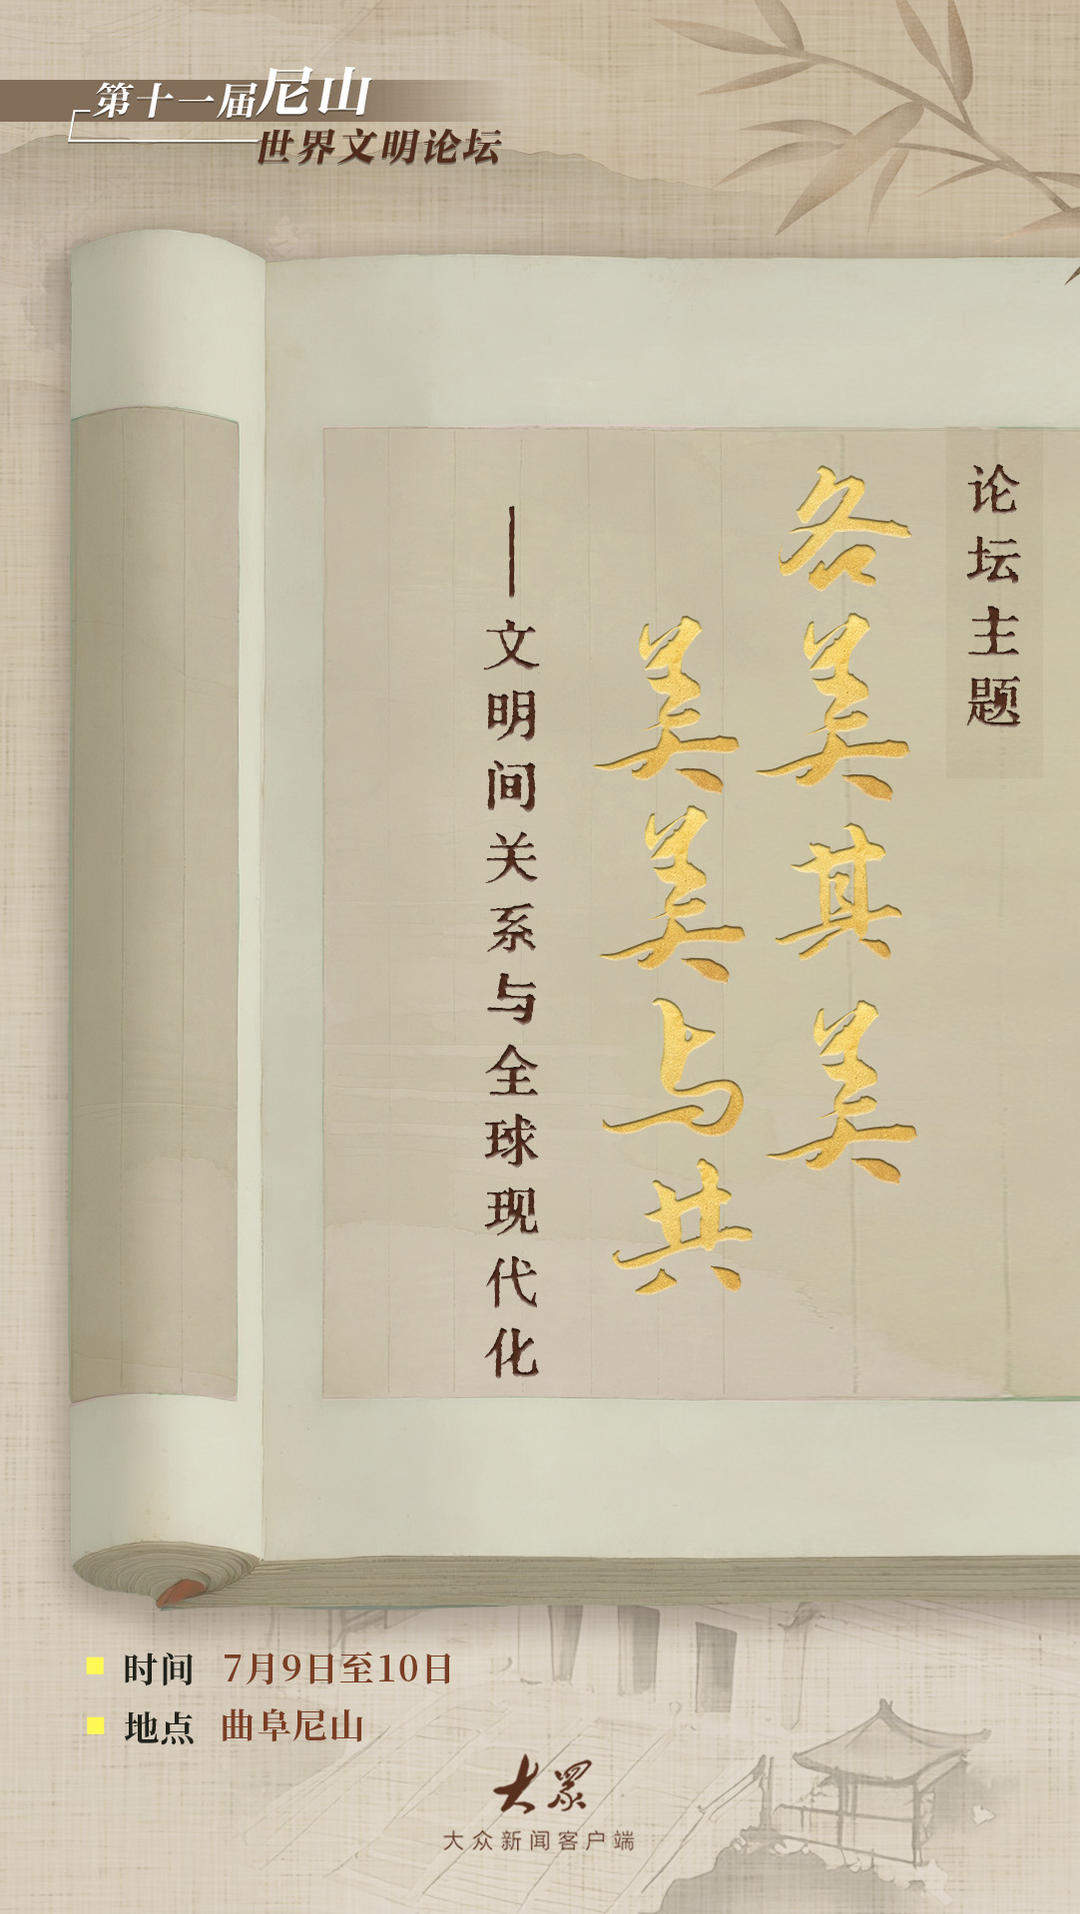 第十一届尼山
世界文明论坛
论坛主题
各美其美
美美与共
——文明间关系与全球现代化
时间 7月9日至10日
地点 曲阜尼山
大眾
大众新闻客户端